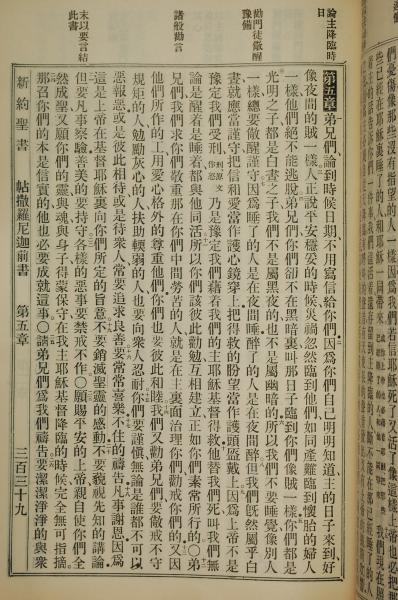 論主降臨時日
勸門徒儆醒豫備
諸般勸言
末以要言結此書
第五章 弟兄們論到時候日期不用寫信給你們因爲你們自己明明知道主的日子來到好
像夜間的賊一樣人正說平安穩妥的時候災禍忽然臨到他們如同產難臨到懷胎的婦人
一樣他們絕不能逃脫弟兄們你們卻不在黑暗裏叫那日子臨到你們像賊一樣你們都是
光明之子都是白晝之子我們不是屬黑夜的也不是屬幽暗的所以我們不要睡覺像別人
一樣總要儆醒謹守因爲睡了的人是在夜間睡醉了的人是在夜間醉但我們旣然屬乎白
晝就應當謹守把信和愛當作護心鏡穿上把得救的盼望當作護頭盔戴上因爲上帝不是
豫定我們受刑 乃是豫定我們藉着我們的主耶穌基督得救他替我們死叫我們無
論是醒着是睡着都與他同活所以你們該彼此勸勉互相建立正如你們素常所行的○弟
兄們我們求你們敬重那在你們中間勞苦的人就是在主裏面治理你們勸戒你們的又因
他們所作的工用愛心格外的尊重他們你們也要彼此和睦我們又勸弟兄們要儆戒不守
規矩的人勉勵灰心的人扶助輭弱的人也要向衆人忍耐你們要謹愼無論是誰都不可以
惡報惡或是彼此相待或是待衆人常要追求良善要常常喜樂不住的禱告凡事謝恩因爲
這是上帝在基督耶穌裏向你們所定的旨意不要銷滅聖靈的感動不要藐視先知的講論
但要凡事察驗善美的要持守各樣的惡事要禁戒不作○願賜平安的上帝親自使你們全
然成聖又願你們的靈與魂與身子得蒙保守在我主耶穌基督降臨的時候完全無可指摘
那召你們的本是信實的他也必要成就這事○請弟兄們爲我們禱告要潔潔淨淨的與衆
新約聖書 帖撒羅尼迦前書 第五章 三百三十九